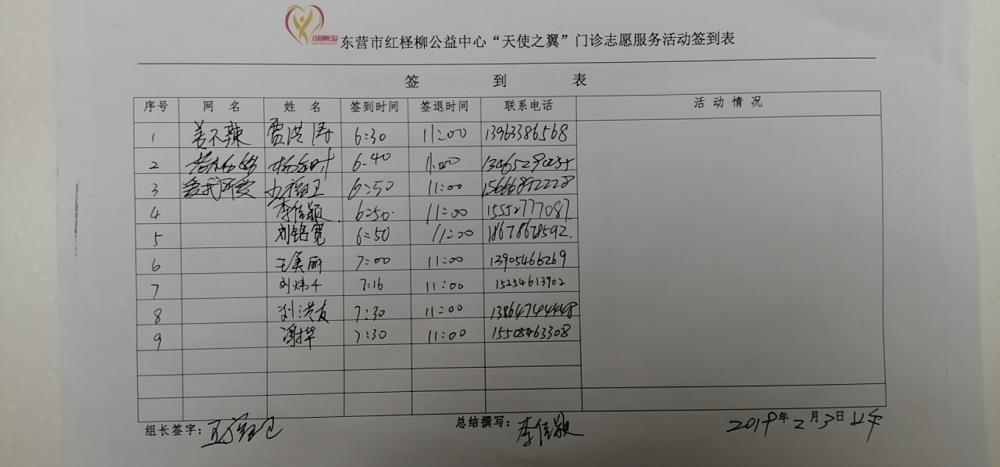 东营市红柽柳公益中心“天使之翼”门诊志愿服务活动签到表
签 到 表
序号 网 名 姓 名 签到时间 签退时间 联系电话 活动情况
1 姜不辣 贾洪涛 6:30 11:00 13963386568
2 6-40 11:00
3 6:50 11:00 15666892228
4 李佳颖 6:50 11:00 15552777087
5 刘铭宽 6:50 11:00 18678678592
6 王美丽 7:00 11:00 13905466269
7 7:16 11:00 15254613902
8 刘洪友 7:30 11:00 13864744448
9 7:30 11:00
组长签字: 总结撰写: 李佳颖 2019年2月3日上午